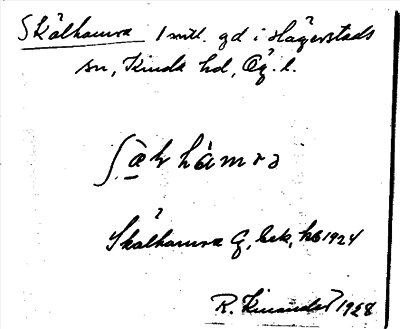 Skälhamra 1 mtl. gd i Hägerstads
sn, Kinda hd, Ög. l.
ʃæ̱lhàmra
Skälhamra G, bek, hb 1924
R. Kinander 1928